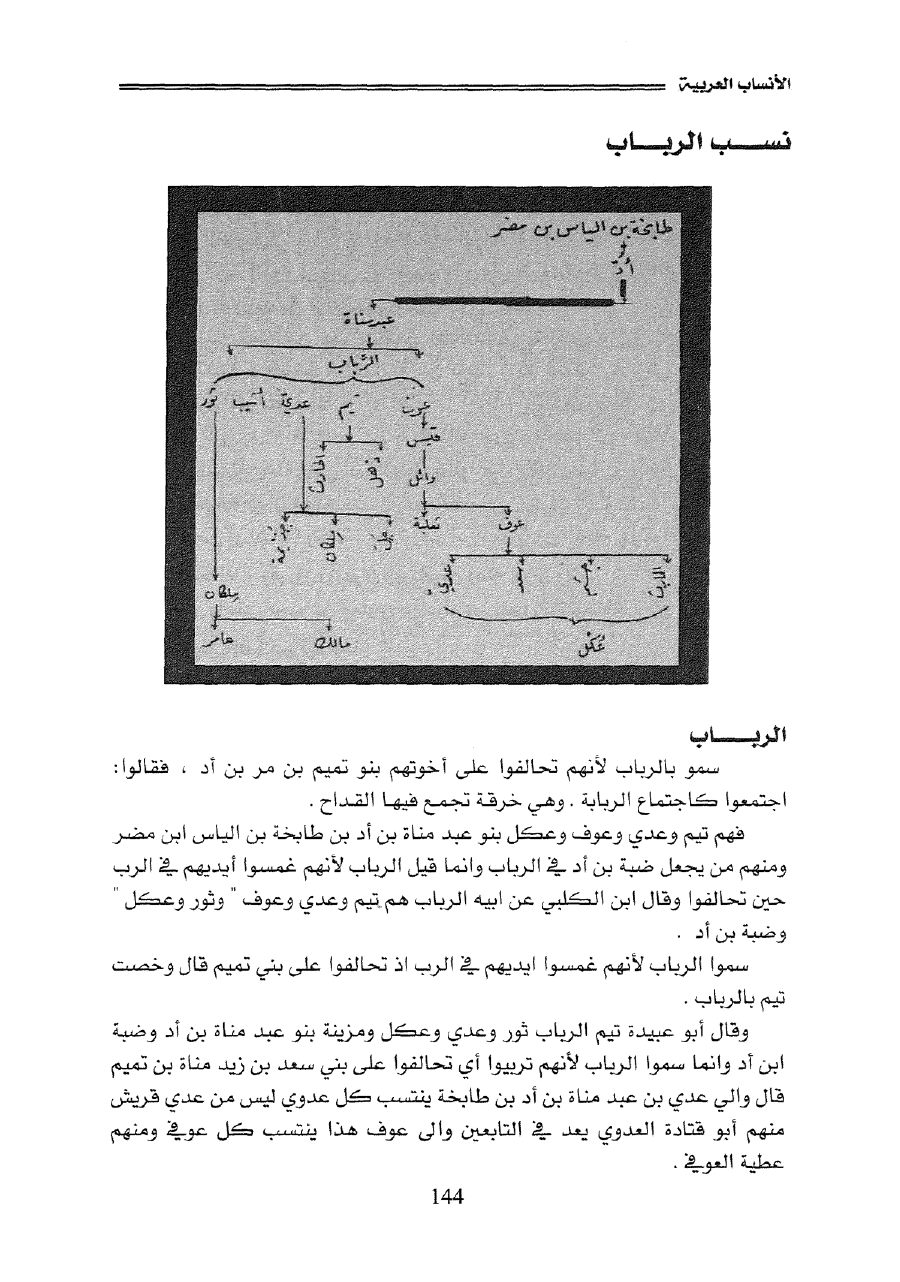 الأنساب العربية
نســـب الربـــاب
طابخة بن الياس بن مضر
أد
عبد مناة
الرباب
عوف تيم عدي أشيب ثور
قيس
الحارث ذهل وائل
جذيمة ملكان جل ثعلبة عوف
عدي سعد جشم الحارث
ملكان
عامر مالك عكل
الربـــــاب
سمو بالرباب لأنهم تحالفوا على أخوتهم بنو تميم بن مر بن أد ، فقالوا:
اجتمعوا كاجتماع الربابة . وهي خرقة تجمع فيها القداح .
فهم تيم وعدي وعوف وعكل بنو عبد مناة بن أد بن طابخة بن الياس ابن مضر
ومنهم من يجعل ضبة بن أد في الرباب وانما قيل الرباب لأنهم غمسوا أيديهم في الرب
حين تحالفوا وقال ابن الكلبي عن ابيه الرباب هم تيم وعدي وعوف " وثور وعكل "
وضبة بن أد .
سموا الرباب لأنهم غمسوا ايديهم في الرب اذ تحالفوا على بني تميم قال وخصت
تيم بالرباب .
وقال أبو عبيدة تيم الرباب ثور وعدي وعكل ومزينة بنو عبد مناة بن أد وضبة
ابن أد وانما سموا الرباب لأنهم تربيوا أي تحالفوا على بني سعد بن زيد مناة بن تميم
قال والي عدي بن عبد مناة بن أد بن طابخة ينتسب كل عدوي ليس من عدي قريش
منهم أبو قتادة العدوي يعد في التابعين والى عوف هذا ينتسب كل عوفي ومنهم
عطية العوفي .
144